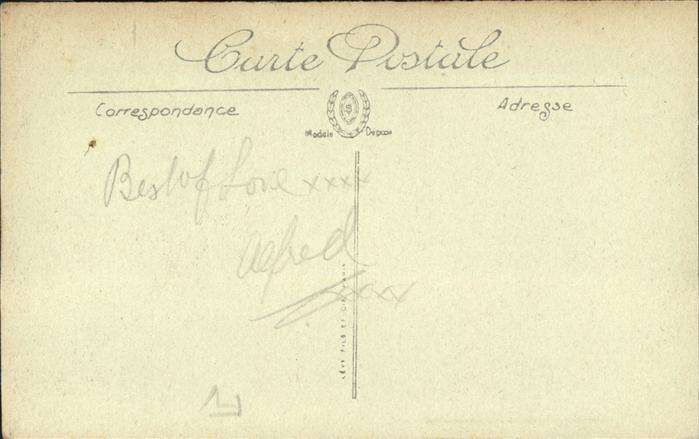 Carte Postale
Correspondance
Adresse
Best of Love xxxx
Alfred
xxxx